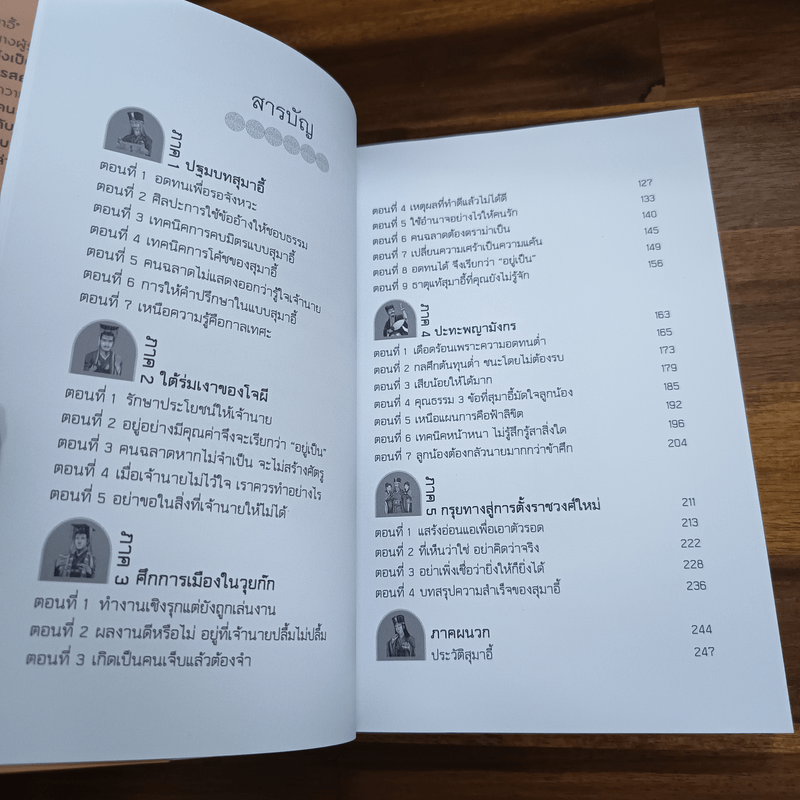 สารบัญ
ภาค 1 ปฐมบทสุมาอี้
ตอนที่ 1 อดทนเพื่อรอจังหวะ
ตอนที่ 2 ศิลปะการใช้ข้ออ้างให้ชอบธรรม
ตอนที่ 3 เทคนิคการคบมิตรแบบสุมาอี้
ตอนที่ 4 เทคนิคการโค้ชของสุมาอี้
ตอนที่ 5 คนฉลาดไม่แสดงออกว่ารู้ใจเจ้านาย
ตอนที่ 6 การให้คำปรึกษาในแบบสุมาอี้
ตอนที่ 7 เหนือความรู้คือกาลเทศะ
ภาค 2 ใต้ร่มเงาของโจผี
ตอนที่ 1 รักษาประโยชน์ให้เจ้านาย
ตอนที่ 2 อยู่อย่างมีคุณค่าจึงจะเรียกว่า “อยู่เป็น”
ตอนที่ 3 คนฉลาดหากไม่จำเป็น จะไม่สร้างศัตรู
ตอนที่ 4 เมื่อเจ้านายไม่ไว้ใจ เราควรทำอย่างไร
ตอนที่ 5 อย่าขอในสิ่งที่เจ้านายให้ไม่ได้
ภาค 3 ศึกการเมืองในวุยก๊ก
ตอนที่ 1 ทำงานเชิงรุกแต่ยังถูกเล่นงาน
ตอนที่ 2 ผลงานดีหรือไม่ อยู่ที่เจ้านายปลื้มไม่ปลื้ม
ตอนที่ 3 เกิดเป็นคนเจ็บแล้วต้องจำ
ตอนที่ 4 เหตุผลที่ทำดีแล้วไม่ได้ดี 127
ตอนที่ 5 ใช้อำนาจอย่างไรให้คนรัก 133
ตอนที่ 6 คนฉลาดต้องดราม่าเป็น 140
ตอนที่ 7 เปลี่ยนความเศร้าเป็นความแค้น 145
ตอนที่ 8 อดทนได้ จึงเรียกว่า “อยู่เป็น” 149
ตอนที่ 9 ธาตุแท้สุมาอี้ที่คุณยังไม่รู้จัก 156
ภาค 4 ปะทะพญามังกร 163
ตอนที่ 1 เดือดร้อนเพราะความอดทนต่ำ 165
ตอนที่ 2 กลศึกต้นทุนต่ำ ชนะโดยไม่ต้องรบ 173
ตอนที่ 3 เสียน้อยให้ได้มาก 179
ตอนที่ 4 คุณธรรม 3 ข้อที่สุมาอี้มัดใจลูกน้อง 185
ตอนที่ 5 เหนือแผนการคือฟ้าลิขิต 192
ตอนที่ 6 เทคนิคหน้าหนา ไม่รู้สึกรู้สาสิ่งใด 196
ตอนที่ 7 ลูกน้องต้องกลัวนายมากกว่าข้าศึก 204
ภาค 5 กรุยทางสู่การตั้งราชวงศ์ใหม่ 211
ตอนที่ 1 แสร้งอ่อนแอเพื่อเอาตัวรอด 213
ตอนที่ 2 ที่เห็นว่าใช่ อย่าคิดว่าจริง 222
ตอนที่ 3 อย่าเพิ่งเชื่อว่ายิ่งให้ก็ยิ่งได้ 228
ตอนที่ 4 บทสรุปความสำเร็จของสุมาอี้ 236
ภาคผนวก 244
ประวัติสุมาอี้ 247